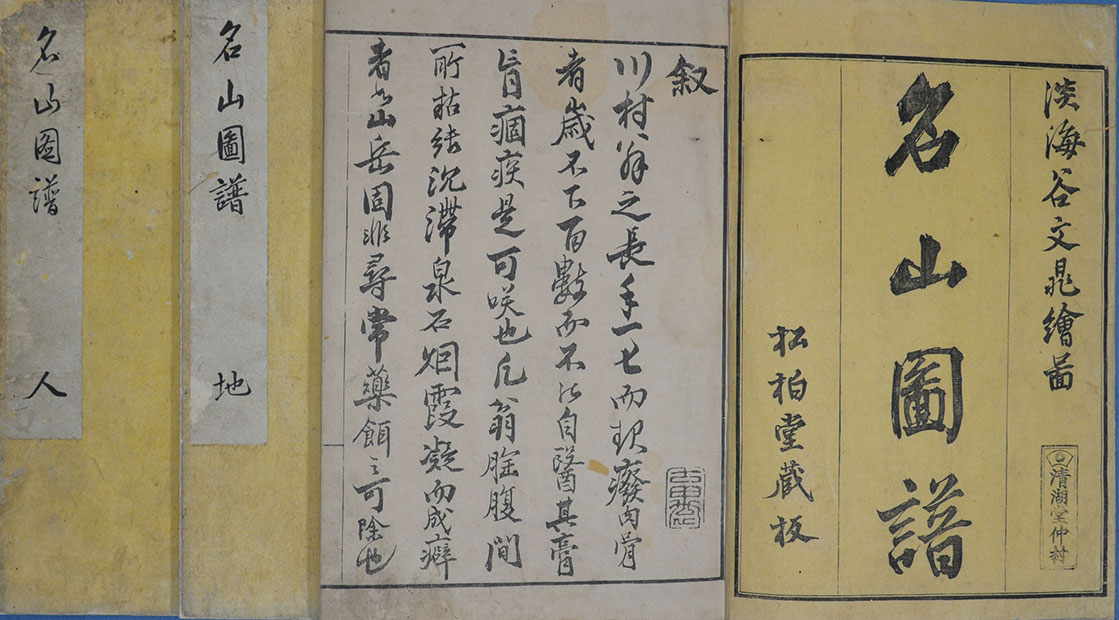 淡海谷文晁繪啚
名山圖譜
松柏堂蔵板
清湖堂仲村
叙
川村翁之長手一匕而起癈肉骨
者歳不下百數而不能自醫其膏
肓痼疾是可咲也凡翁腔腹間
所枯结沉滯泉石烟霞凝而成癖
者如山岳固非尋常藥餌之可除也
名山圖譜 地
名山图譜 人